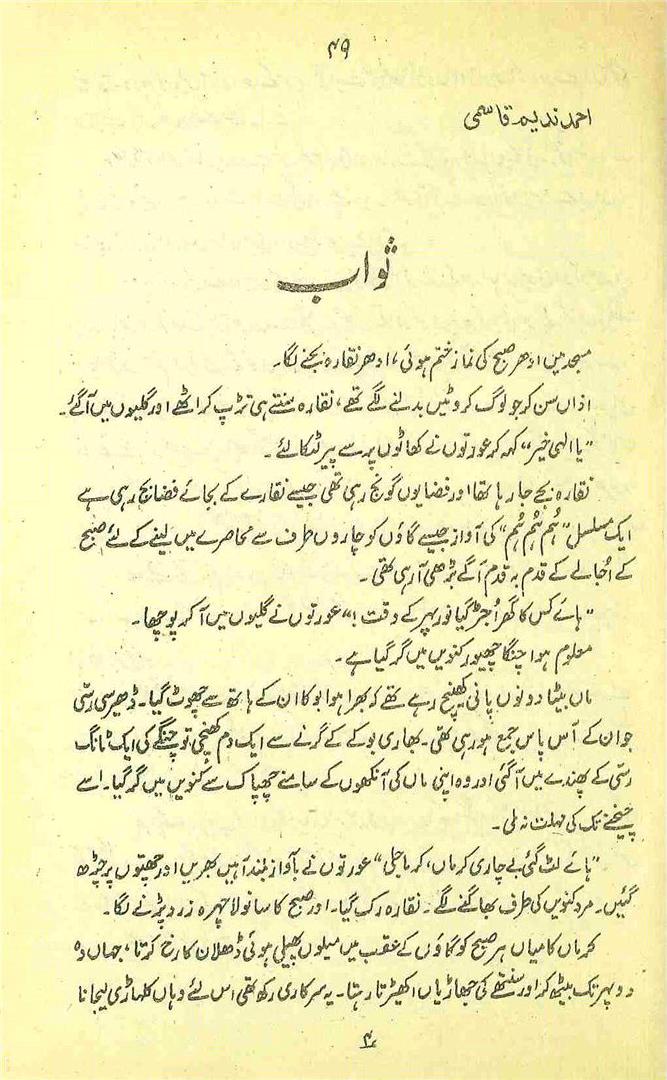 ۴۹
احمد ندیم قاسمی
ثواب
مسجد میں ادھر صبح کی نماز ختم ہوئی، ادھر نقارہ بجنے لگا۔
اذاں سن کر جو لوگ کروٹیں بدلنے لگے تھے، نقارہ سنتے ہی تڑپ کر اٹھے اور گلیوں میں آ گئے۔
”یا الٰہی خیر“ کہہ کر عورتوں نے کھاٹوں پر سے پیر لٹکا لئے۔
نقارہ بجے جا رہا تھا اور فضا یوں گونج رہی تھی جیسے نقارے کے بجائے فضا بج رہی ہے
ایک مسلسل ”ہُم ہُم ہُم“ کی آواز جیسے گاؤں کو چاروں طرف سے محاصرے میں لینے کے لئے صبح
کے اُجالے کے قدم بہ قدم آگے بڑھی آ رہی تھی۔
”ہائے کس کا گھر اُجڑ گیا نور پہر کے وقت!“ عورتوں نے گلیوں میں آ کر پوچھا۔
معلوم ہوا چنگا چھیور کنویں میں گر گیا ہے۔
ماں بیٹا دونوں پانی کھینچ رہے تھے کہ بھرا ہوا بوکا ان کے ہاتھ سے چھوٹ گیا۔ ڈھیر سی رسّی
جو ان کے آس پاس جمع ہو رہی تھی۔ بھاری بوکے کے گرنے سے ایک دم کھنچی تو چنگے کی ایک ٹانگ
رسّی کے پھندے میں آ گئی اور وہ اپنی ماں کی آنکھوں کے سامنے چھپاک سے کنویں میں گر گیا۔ اسے
چیخنے تک کی مہلت نہ ملی۔
”ہائے لٹ گئی بے چاری کرماں، کرماجلی“ عورتوں نے بآواز بلند آہیں بھریں اور چھتوں پر چڑھ
گئیں۔ مرد کنویں کی طرف بھاگنے لگے۔ نقارہ رک گیا۔ اور صبح کا سانولا چہرہ زرد پڑنے لگا۔
کرماں کا میاں ہر صبح کو گاؤں کے عقب میں میلوں پھیلی ہوئی ڈھلان کا رخ کرتا، جہاں وہ
دوپہر تک بیٹھ کر اور سنتھے کی جھاڑیاں اکھیڑتا رہتا۔ یہ سرکاری رکھ تھی اس لئے وہاں کلہاڑی لیجانا